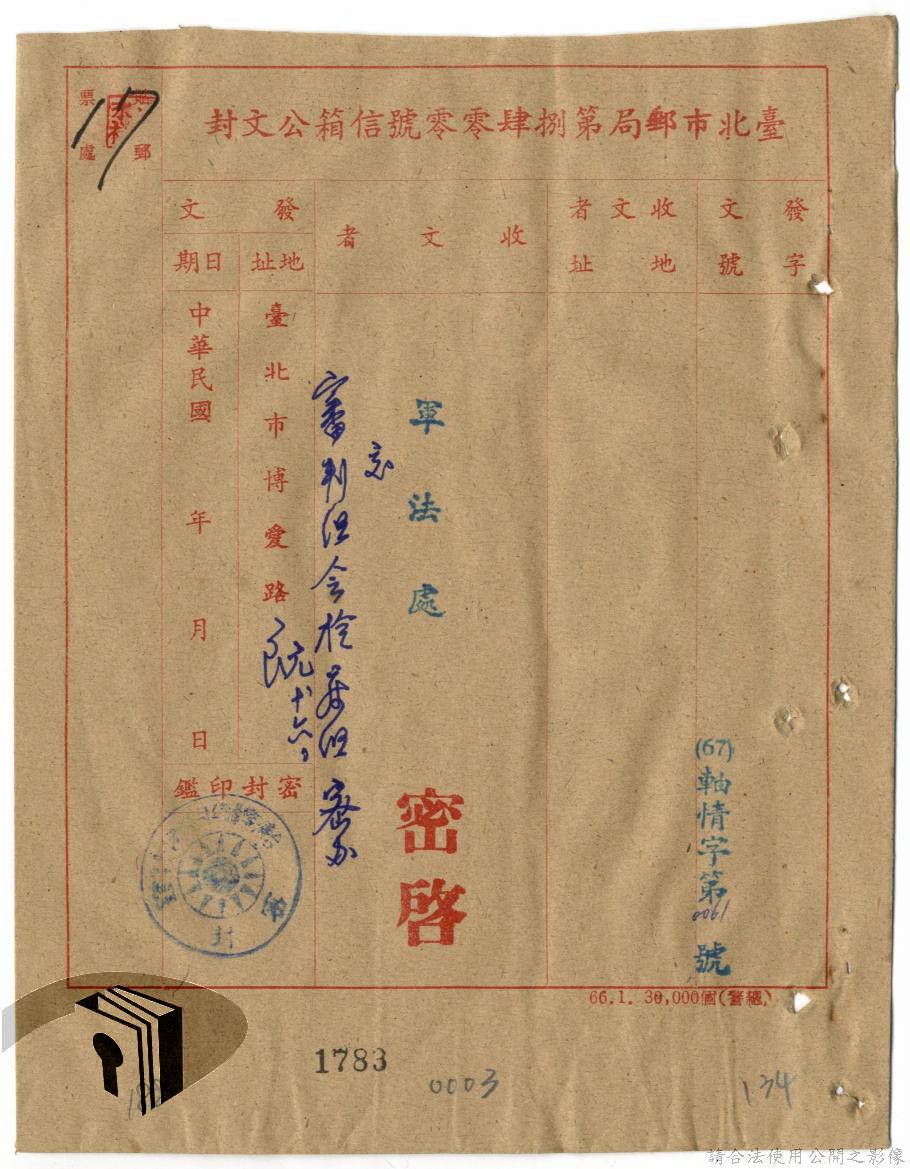 臺北市郵局第捌肆零零號信箱公文封
郵票
處
發文
字號
收文者
地址
收文者
發文
地址
日期
(67)軸情字第0061號
軍法處
密啓
交
審判組會檢察組密办
臺北市博愛路
中華民國 年 月 日
密封印鑑
密
封
66.1. 30,000個(警總)
1783
0003
134
請合法使用公開之影像